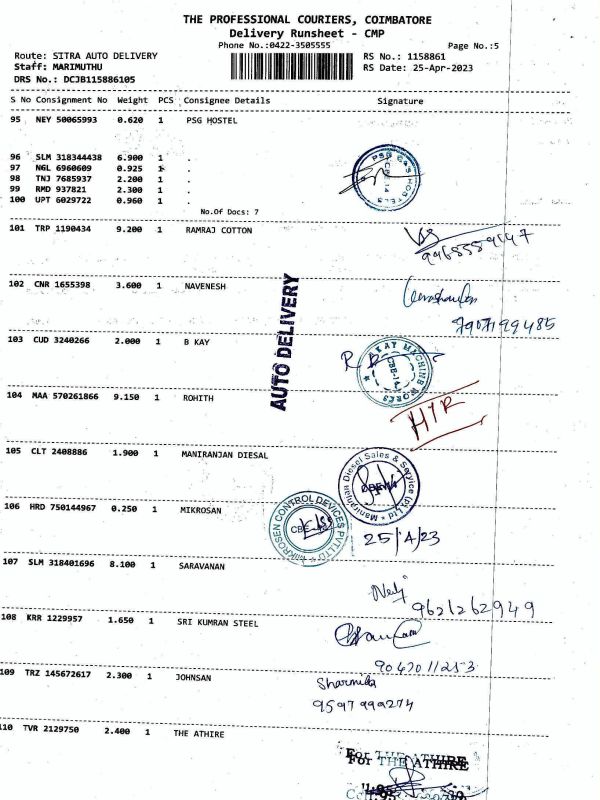 THE PROFESSIONAL COURIERS, COIMBATORE
Delivery Runsheet - CMP
Phone No.:0422-3505555
Page No.:5
Route: SITRA AUTO DELIVERY
RS No.: 1158861
Staff: MARIMUTHU
RS Date: 25-Apr-2023
DRS No.: DCJB115886105
S No Consignment No Weight PCS Consignee Details Signature
95 NEY 50065993 0.620 1 PSG HOSTEL
96 SLM 318344438 6.900 1 .
97 NGL 6960609 0.925 1 .
98 TNJ 7685937 2.200 1 .
99 RMD 937821 2.300 1 .
100 UPT 6029722 0.960 1 .
No.Of Docs: 7
101 TRP 1190434 9.200 1 RAMRAJ COTTON
102 CNR 1655398 3.600 1 NAVENESH
7907199485
AUTO DELIVERY
103 CUD 3240266 2.000 1 B KAY
104 MAA 570261866 9.150 1 ROHITH
105 CLT 2408886 1.900 1 MANIRANJAN DIESAL
Maniranjan Diesel Sales & Service (P) Ltd
106 HRD 750144967 0.250 1 MIKROSAN
MIKROSEN CONTROL DEVICES PVT LTD
25/4/23
107 SLM 318401696 8.100 1 SARAVANAN
9621262949
108 KRR 1229957 1.650 1 SRI KUMRAN STEEL
109 TRZ 145672617 2.300 1 JOHNSAN
Sharmila
9597999274
110 TVR 2129750 2.400 1 THE ATHIRE
For THE ATHIRE